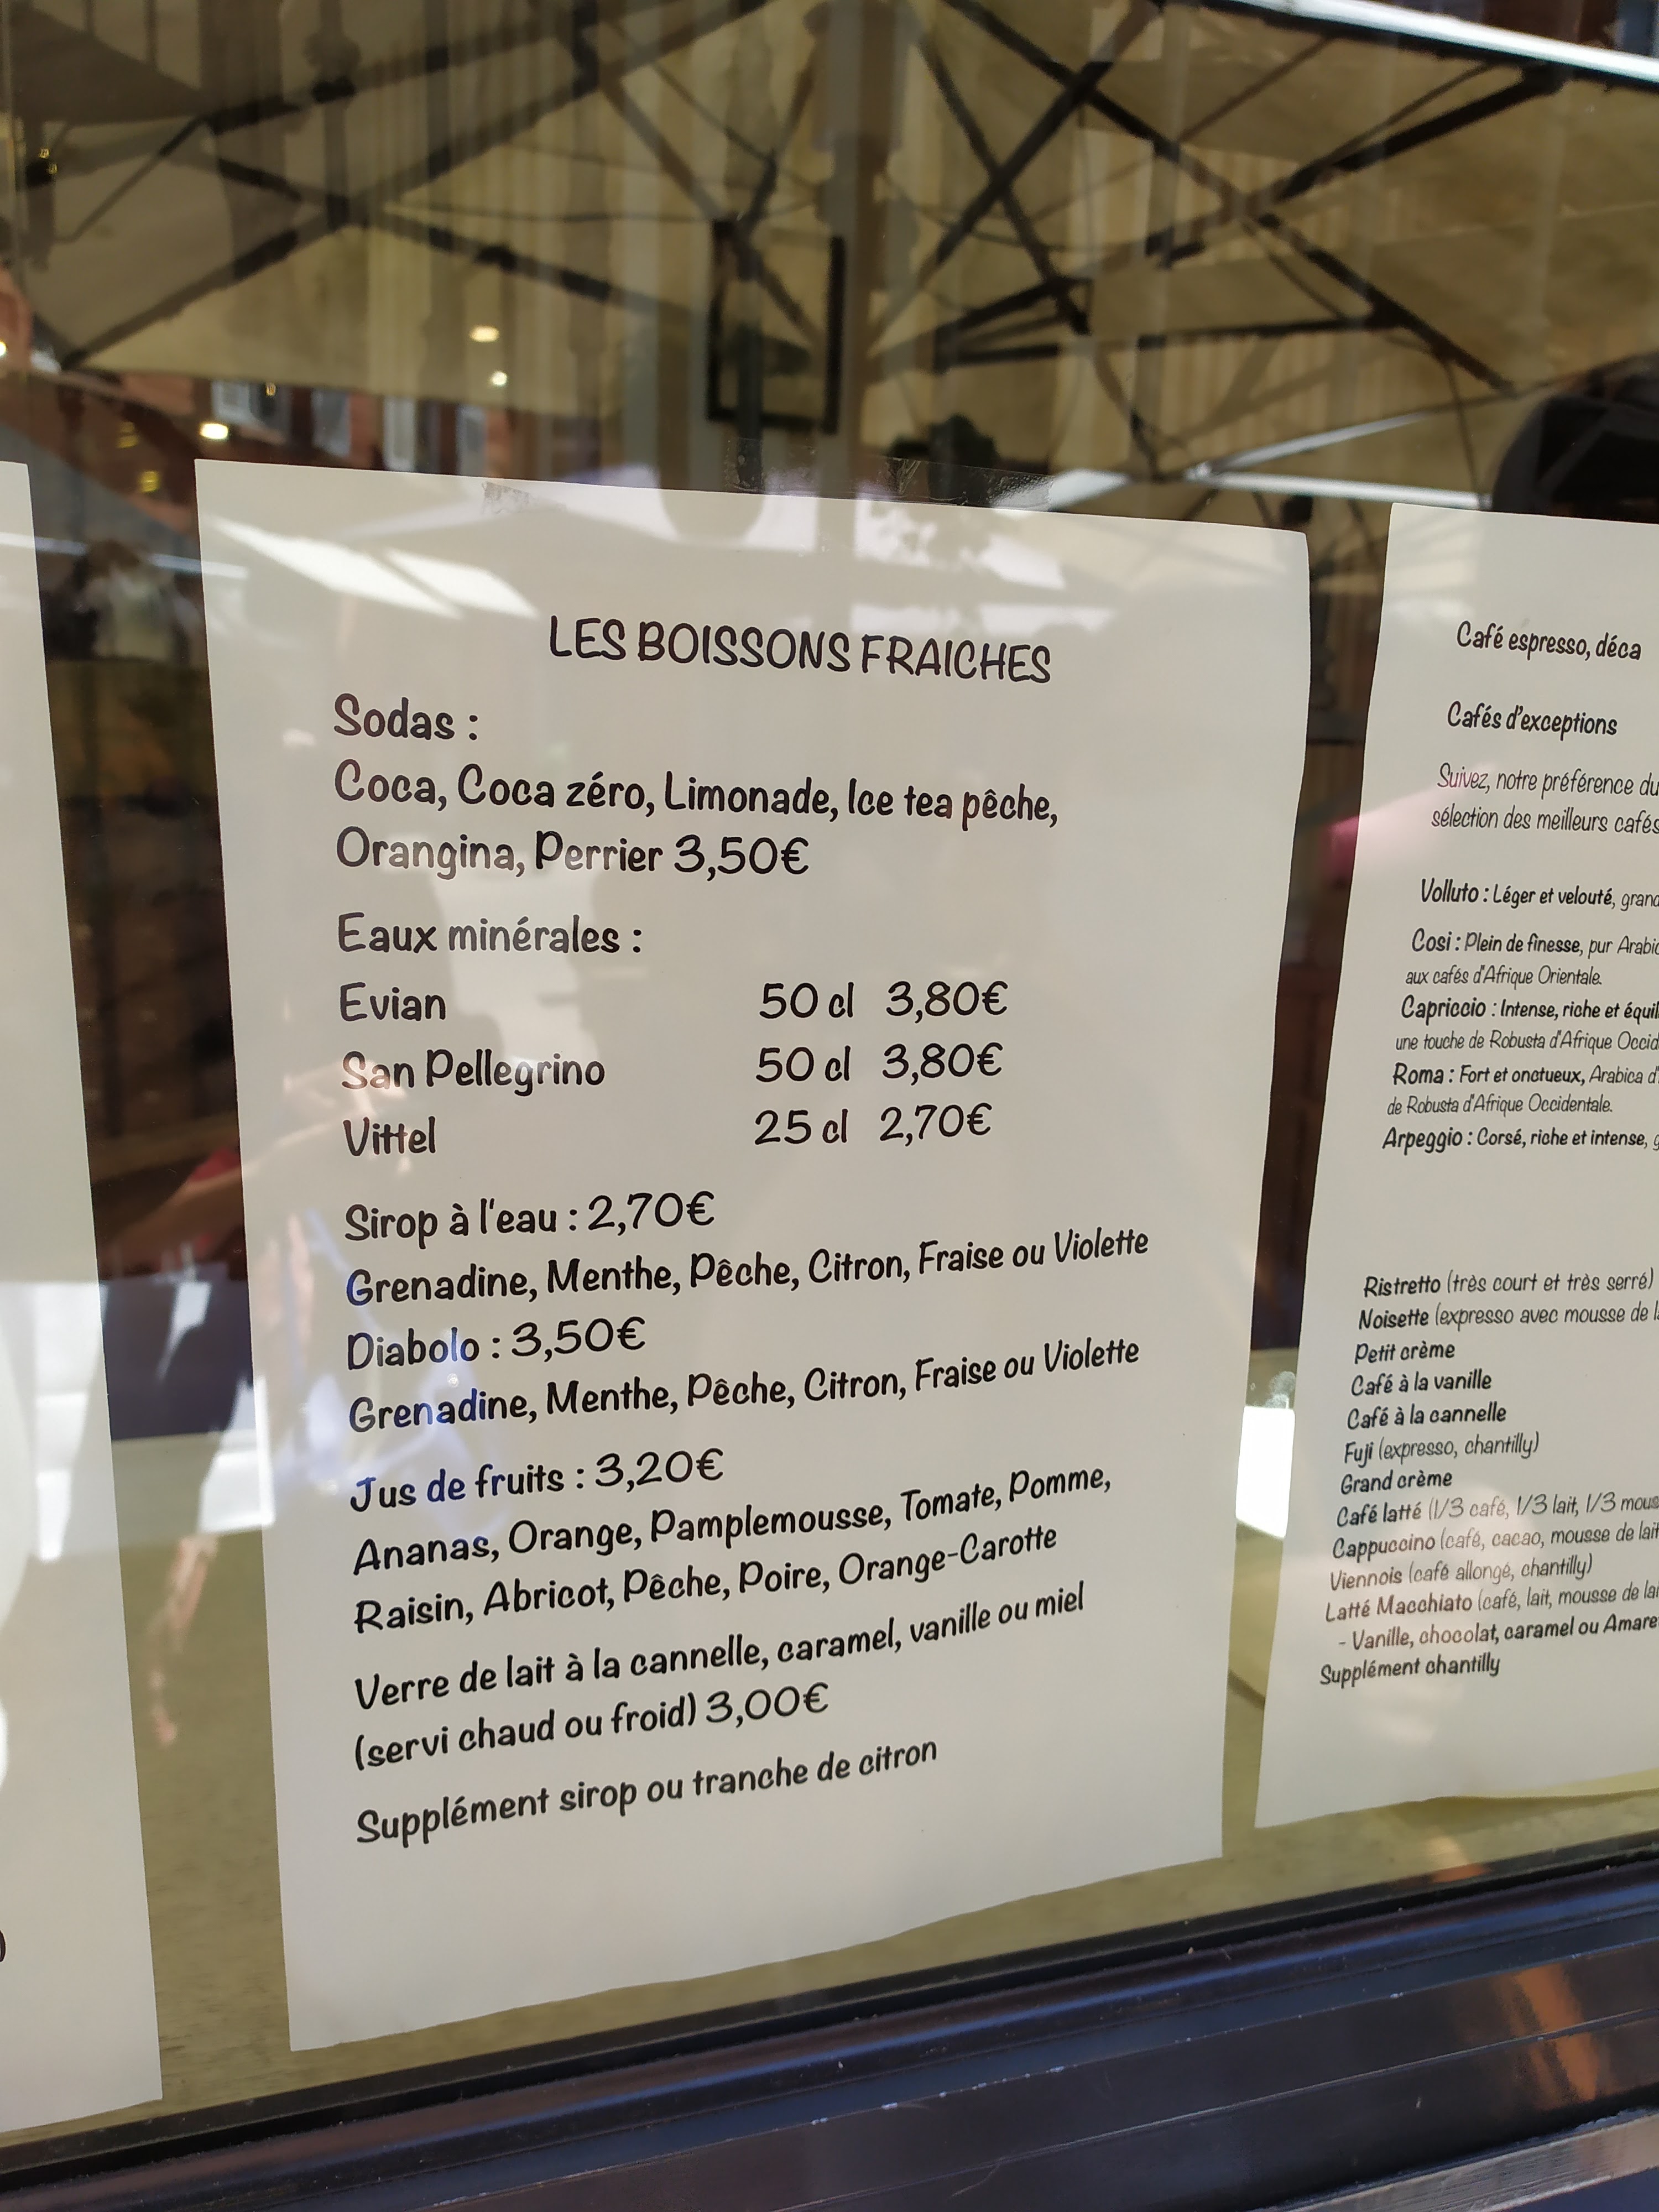 LES BOISSONS FRAICHES
Sodas :
Coca, Coca zéro, Limonade, Ice tea pêche,
Orangina, Perrier 3,50€
Eaux minérales :
Evian 50 cl 3,80€
San Pellegrino 50 cl 3,80€
Vittel 25 cl 2,70€
Sirop à l'eau : 2,70€
Grenadine, Menthe, Pêche, Citron, Fraise ou Violette
Diabolo : 3,50€
Grenadine, Menthe, Pêche, Citron, Fraise ou Violette
Jus de fruits : 3,20€
Ananas, Orange, Pamplemousse, Tomate, Pomme,
Raisin, Abricot, Pêche, Poire, Orange-Carotte
Verre de lait à la cannelle, caramel, vanille ou miel
(servi chaud ou froid) 3,00€
Supplément sirop ou tranche de citron
Café espresso, déca
Cafés d'exceptions
Suivez, notre préférence du
sélection des meilleurs cafés
Volluto : Léger et velouté,
Cosi : Plein de finesse, pur
aux cafés d'Afrique Orientale.
Capriccio : Intense, riche et
une touche de Robusta d'Afrique
Roma : Fort et onctueux, Arabica
de Robusta d'Afrique Occidentale.
Arpeggio : Corsé, riche et intense,
Ristretto (très court et très serré)
Noisette (expresso avec mousse de
Petit crème
Café à la vanille
Café à la cannelle
Fuji (expresso, chantilly)
Grand crème
Café latté (1/3 café, 1/3 lait, 1/3
Cappuccino (café, cacao, mousse de lait
Viennois (café allongé, chantilly)
Latté Macchiato (café, lait, mousse de
- Vanille, chocolat, caramel ou
Supplément chantilly